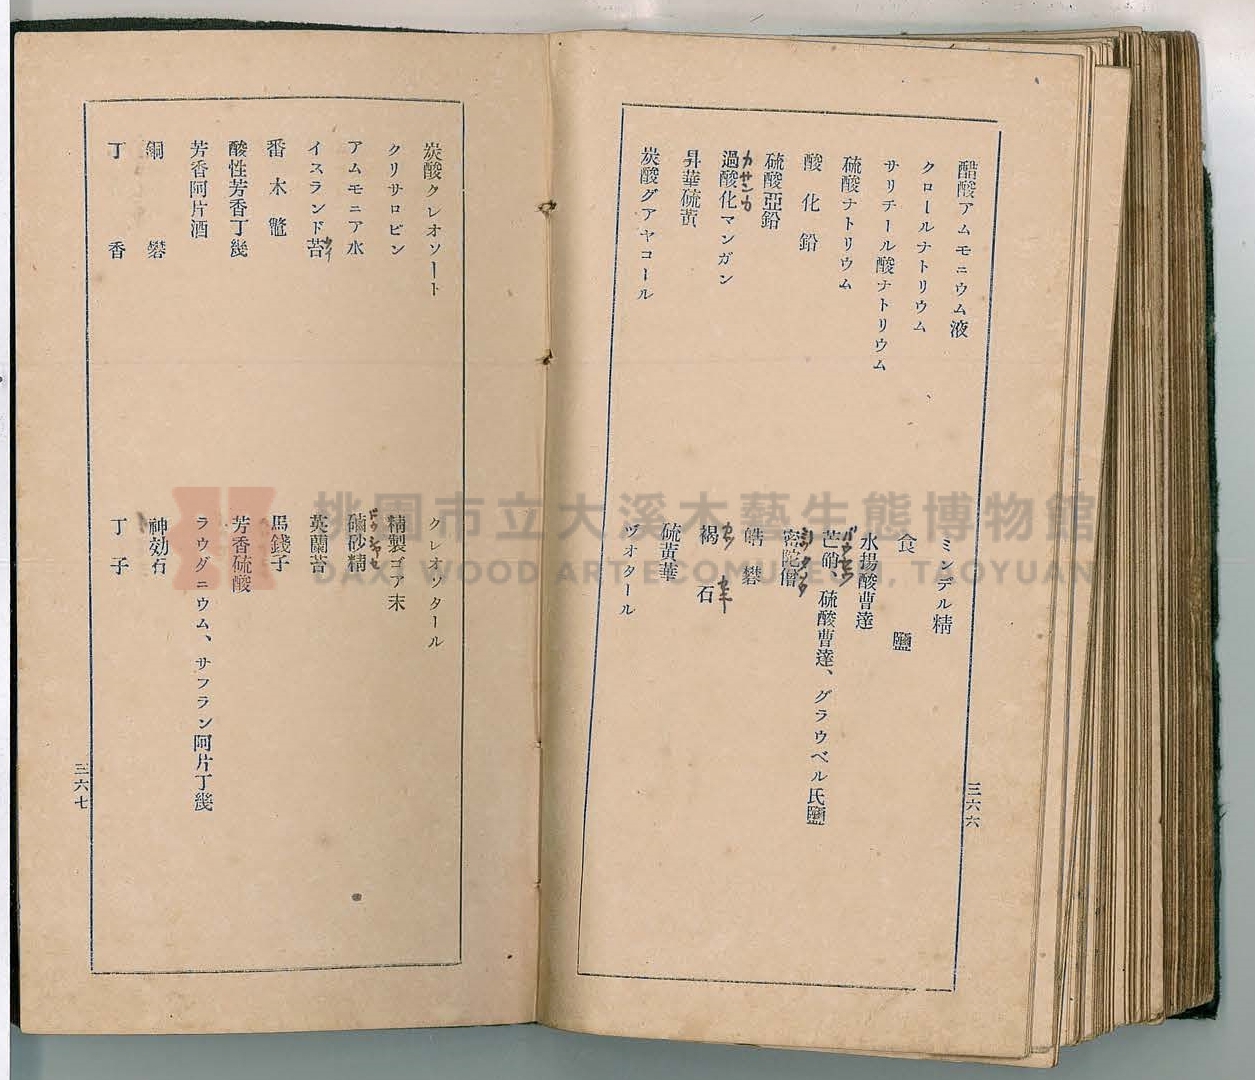 醋酸アムモニウム液　ミンデル精
クロールナトリウム　食鹽
サリチール酸ナトリウム　水揚酸曹達
硫酸ナトリウム　芒硝、硫酸曹達、グラウベル氏鹽
酸化鉛　密陀僧
硫酸亞鉛　皓礬
過酸化マンガン　褐石
カサンカ
昇華硫黄　硫黄華
炭酸グアヤコール　ヅオタール
三六六
炭酸クレオソート　クレオソタール
クリサロビン　精製ゴア末
アムモニア水　磠砂精
イスランド苔　英蘭苔
番木鼈　馬錢子
酸性芳香丁幾　芳香硫酸
芳香阿片酒　ラウダニウム、サフラン阿片丁幾
銅礬　神効石
丁香　丁子
三六七
桃園市立大溪木藝生態博物館
DAXI WOOD ART ECOMUSEUM, TAOYUAN